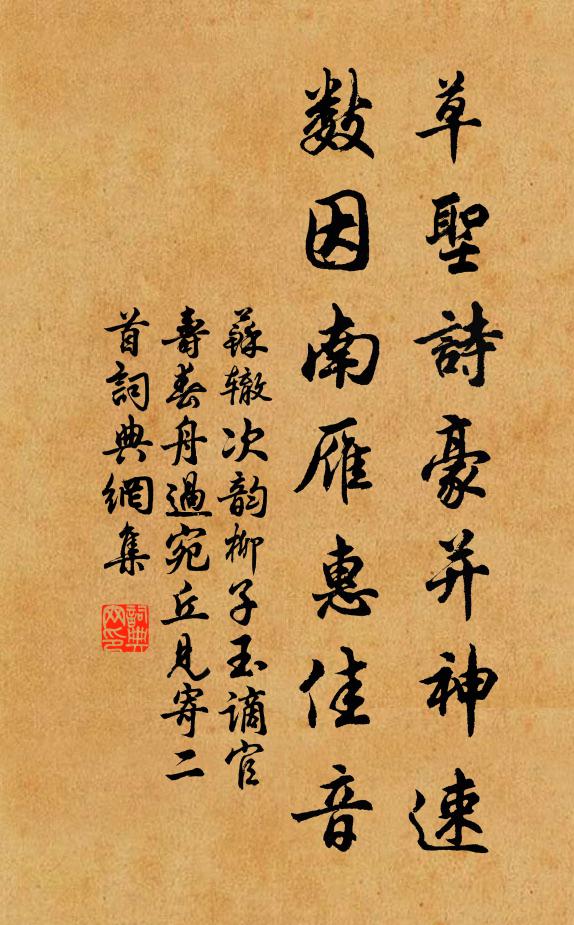 草聖詩豪并神速
數因南雁惠佳音
蘇辙次韵柳子玉謫官
壽春舟過宛丘見寄二
首詞典網集
詞典網印